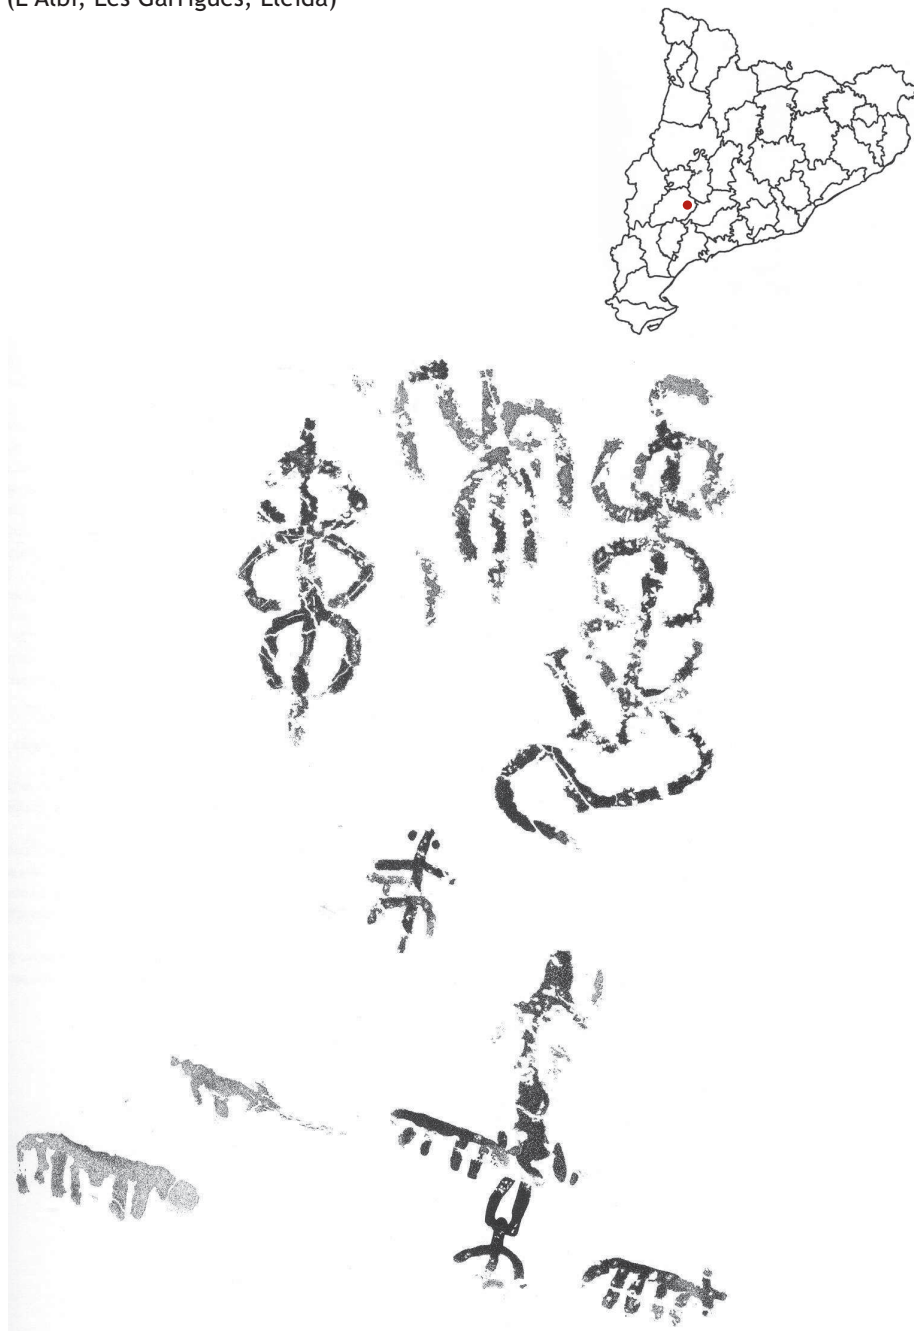 (L'Albi, Les Garrigues, Lleida)